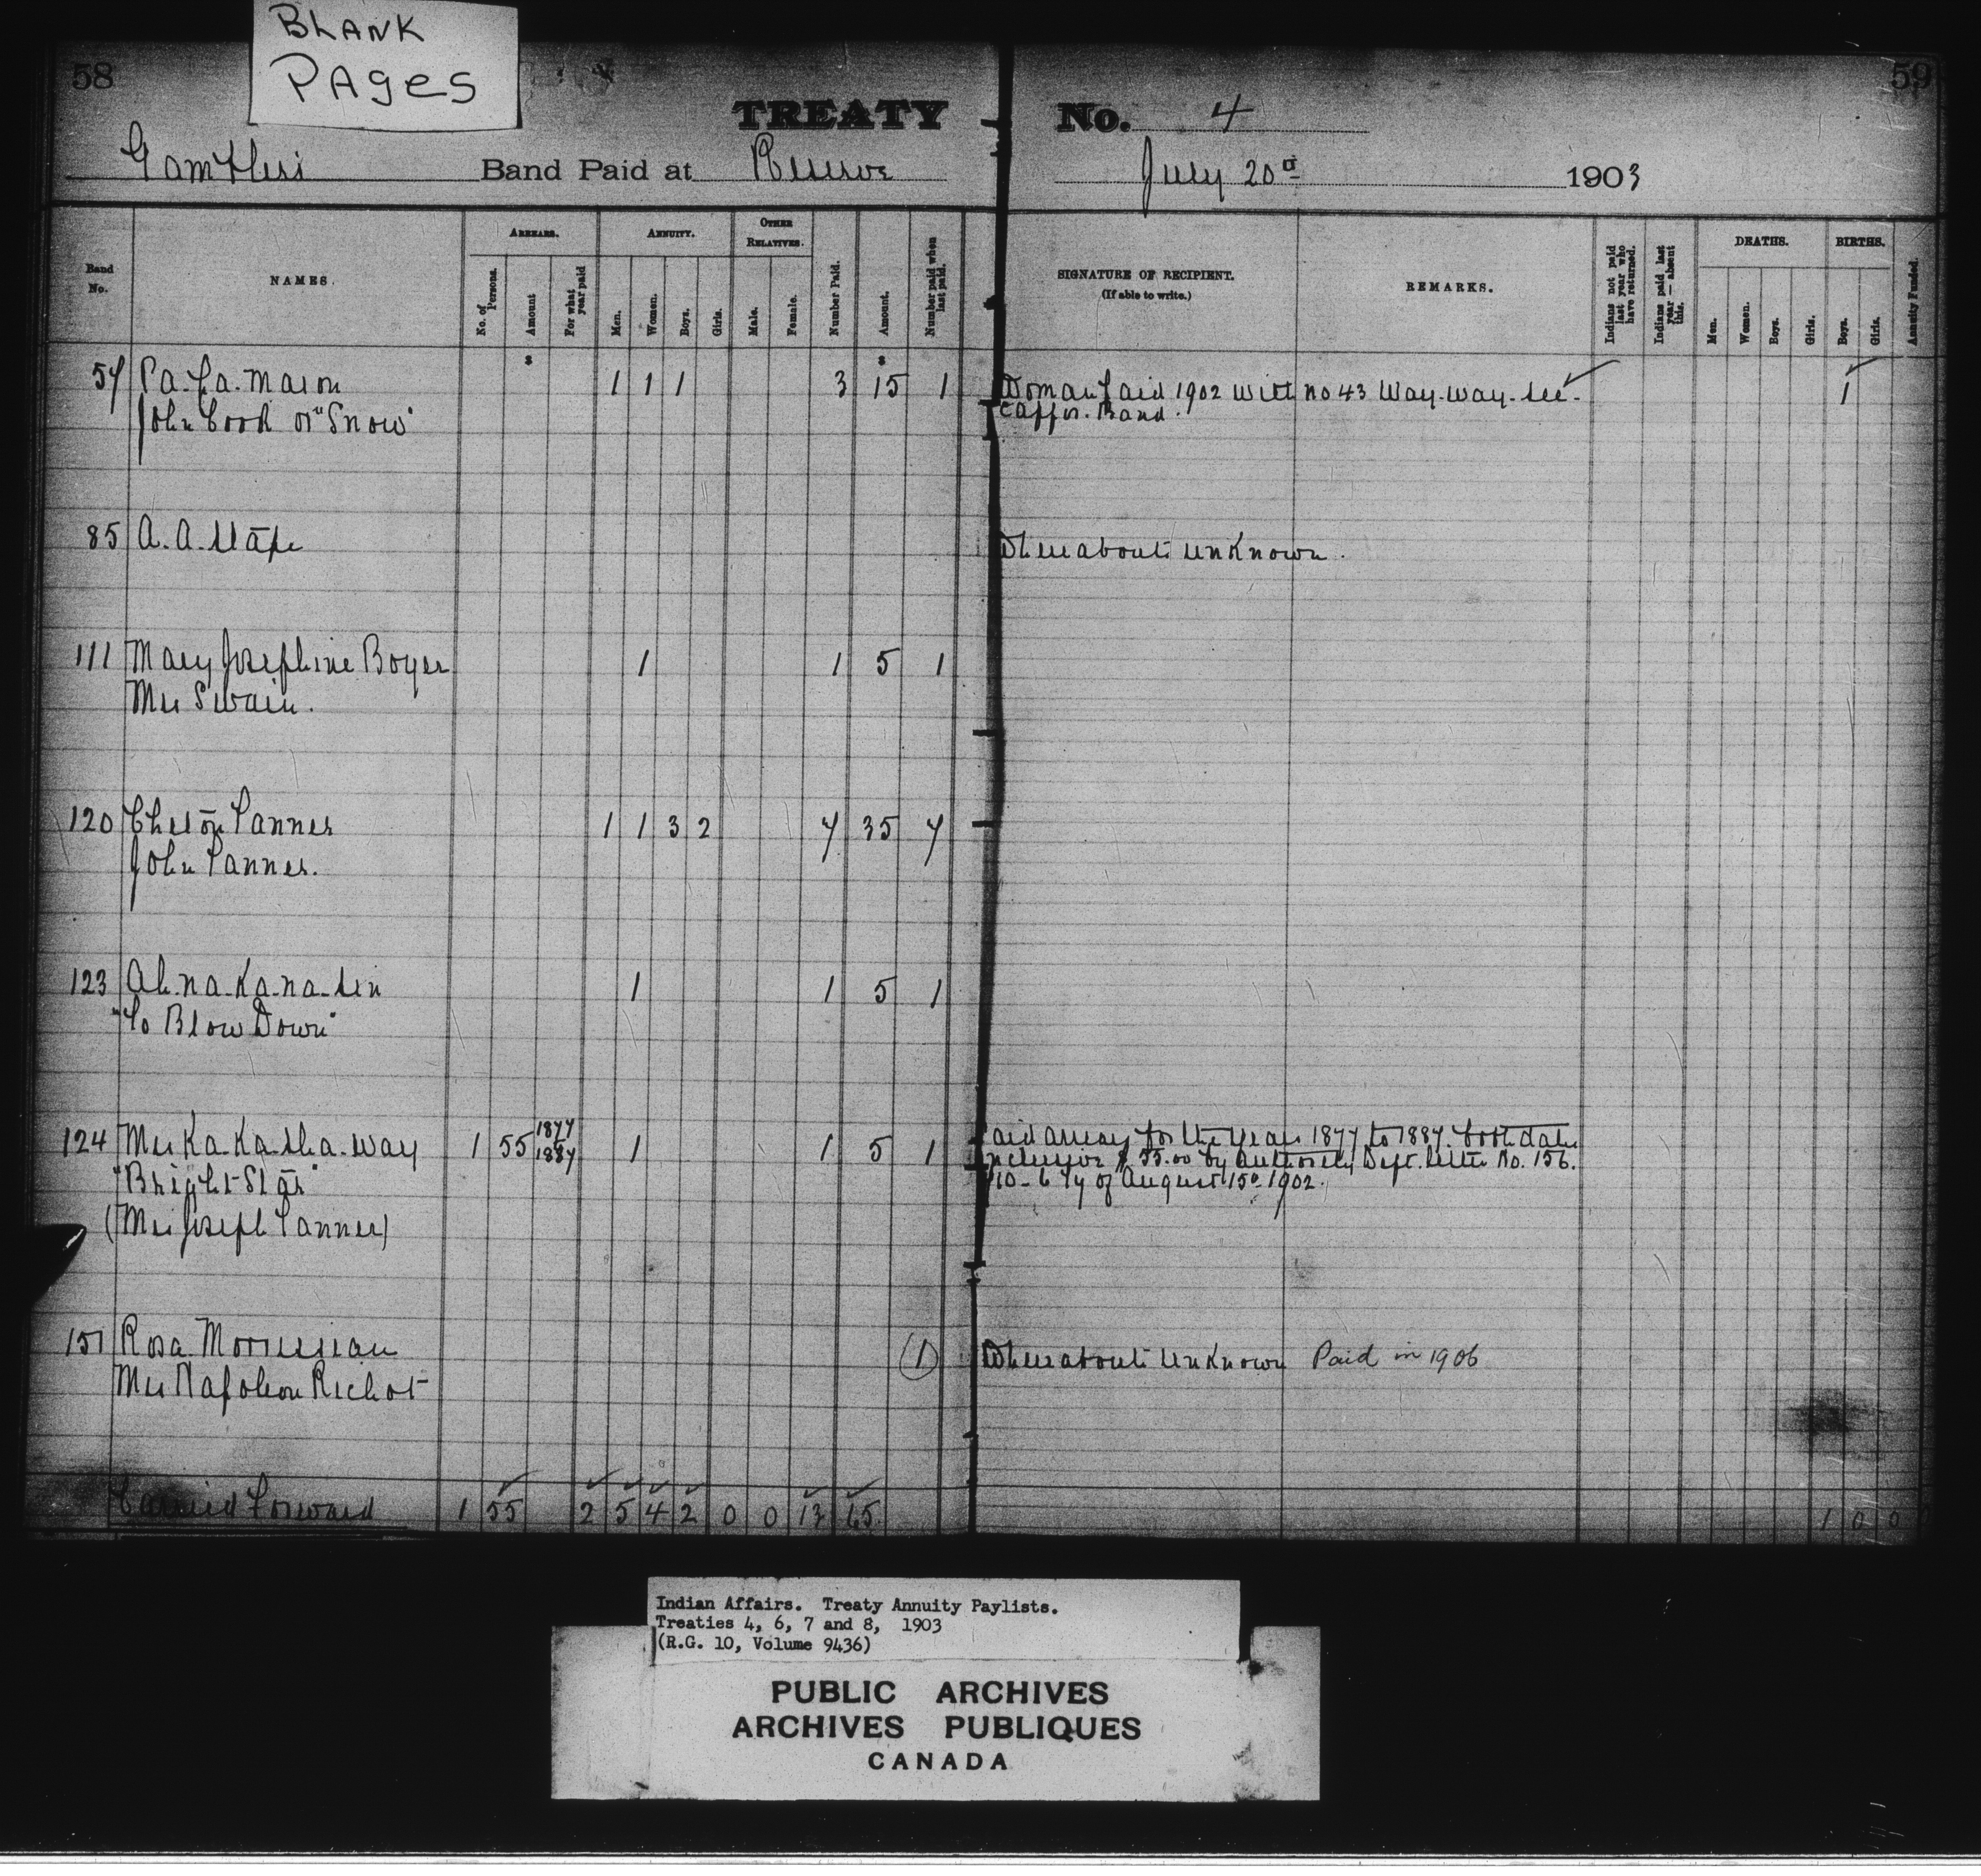 BLANK
PAGES
58
59
TREATY No. 4
Gamblers Band Paid at Reserve July 20th 1903
Band No.
NAMES.
ARREARS.
No. of Persons.
Amount
For what year paid
ANNUITY.
Men.
Women.
Boys.
Girls.
OTHER RELATIVES.
Male.
Female.
Number Paid.
Amount.
Number paid when last paid.
SIGNATURE OF RECIPIENT.
(If able to write.)
REMARKS.
Indians not paid last year who have returned.
Indians paid last year — absent this.
DEATHS.
Men.
Women.
Boys.
Girls.
BIRTHS.
Boys.
Girls.
Annuity Funded.
57 1 1 1 3 15 1 Woman paid 1902 with no 43 Way-way-see- 1
John Cook or "Snow" Band.
85 Whereabouts unknown.
111 Mary Josephine Boyer 1 1 5 1
Mrs Swain.
120 Tanner 1 1 3 2 7 35 7
John Tanner.
123 Ah-na-ka-na-sin 1 1 5 1
"To Blow Down"
124 Mrs Ka-Ka-sha-way 1 55 1877 1887 1 1 5 1 Paid arrears for the years 1877 to 1887 both dates
"Bright Star" inclusive $55.00 by authority Dept. letter No. 156.
(Mrs Joseph Tanner) of August 15th 1902.
151 Rosa Morrisseau (1) Whereabouts unknown Paid in 1906
Mrs Napoleon Richot
Carried Forward 1 55 2 5 4 2 0 0 13 65 1 0 0
Indian Affairs. Treaty Annuity Paylists.
Treaties 4, 6, 7 and 8, 1903
(R.G. 10, Volume 9436)
PUBLIC ARCHIVES
ARCHIVES PUBLIQUES
CANADA